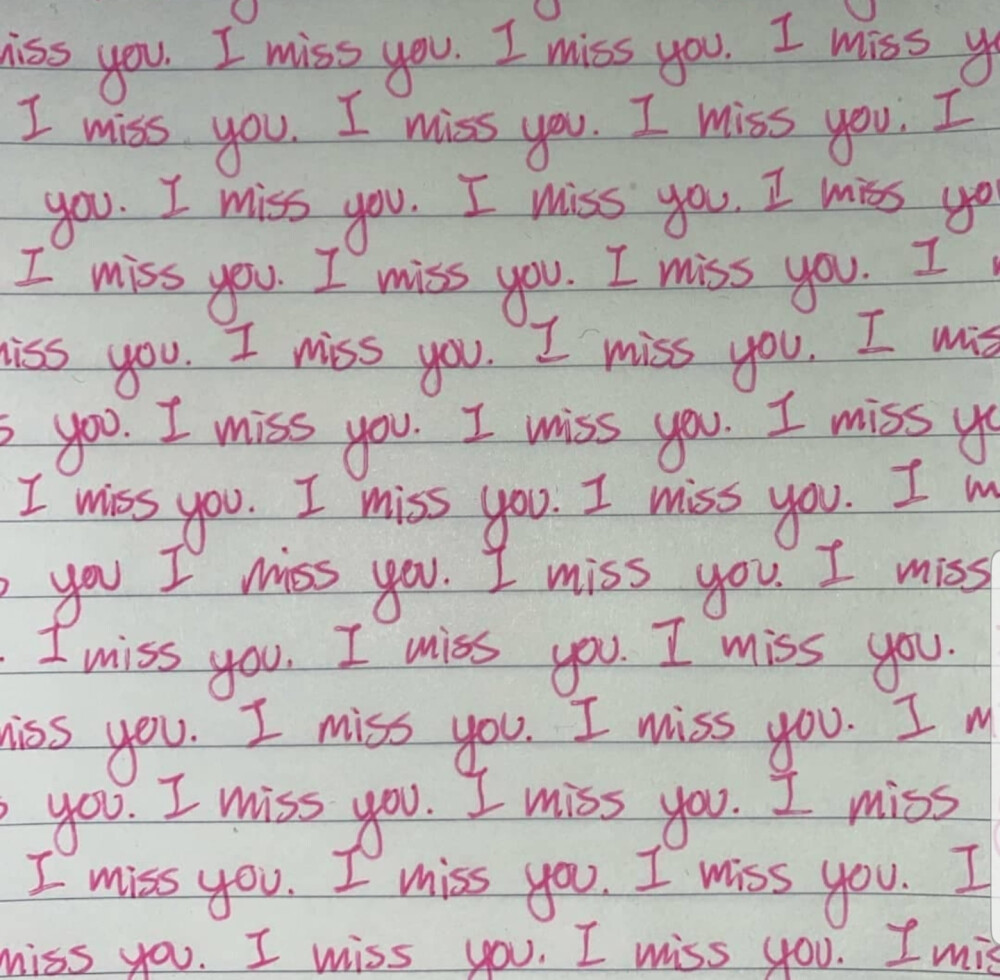 miss you. I miss you. I miss you. I miss yo
I miss you. I miss you. I miss you. I
you. I miss you. I miss you. I miss you
I miss you. I miss you. I miss you. I
miss you. I miss you. I miss you. I mis
s you. I miss you. I miss you. I miss yo
I miss you. I miss you. I miss you. I m
you I miss you. I miss you. I miss
. I miss you. I miss you. I miss you.
miss you. I miss you. I miss you. I m
s you. I miss you. I miss you. I miss
I miss you. I miss you. I miss you. I
miss you. I miss you. I miss you. I mis